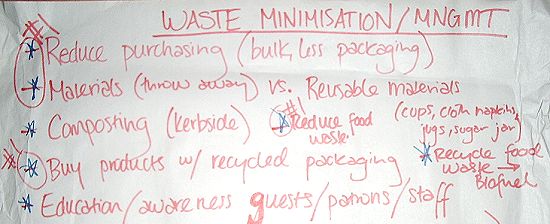 WASTE MINIMISATION/MNGMT
#1
* Reduce purchasing (bulk, less packaging)
* Materials (throw away) vs. Reusable materials
(cups, cloth napkins, jugs, sugar jar)
* Composting (kerbside)
#1
* Reduce food waste
#1
* Buy products w/ recycled packaging
* Recycle food waste → Biofuel
* Education/awareness guests/patrons/staff